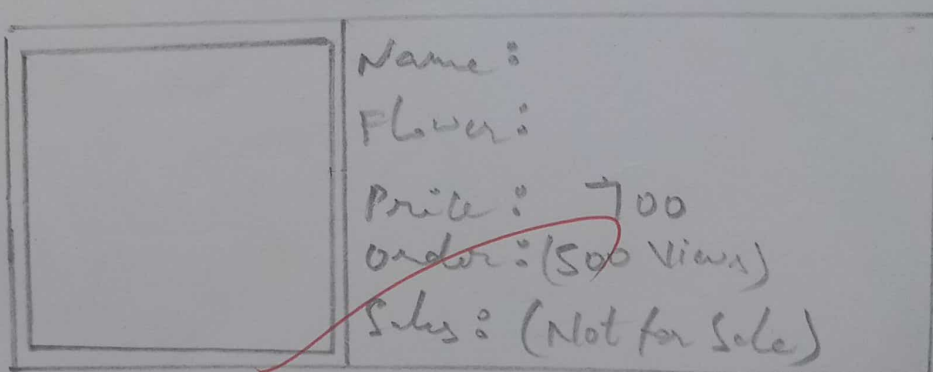 Name:
Flower:
Price: 700
Order: (500 Views)
Sales: (Not for Sale)